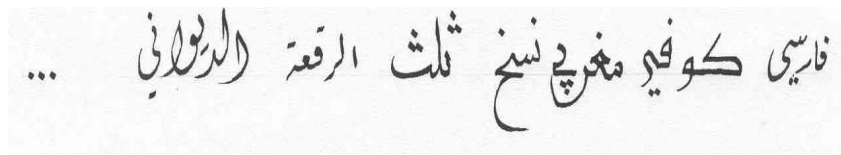 فارسي كوفي مغربي نسخ ثلث الرقعة الديواني ...